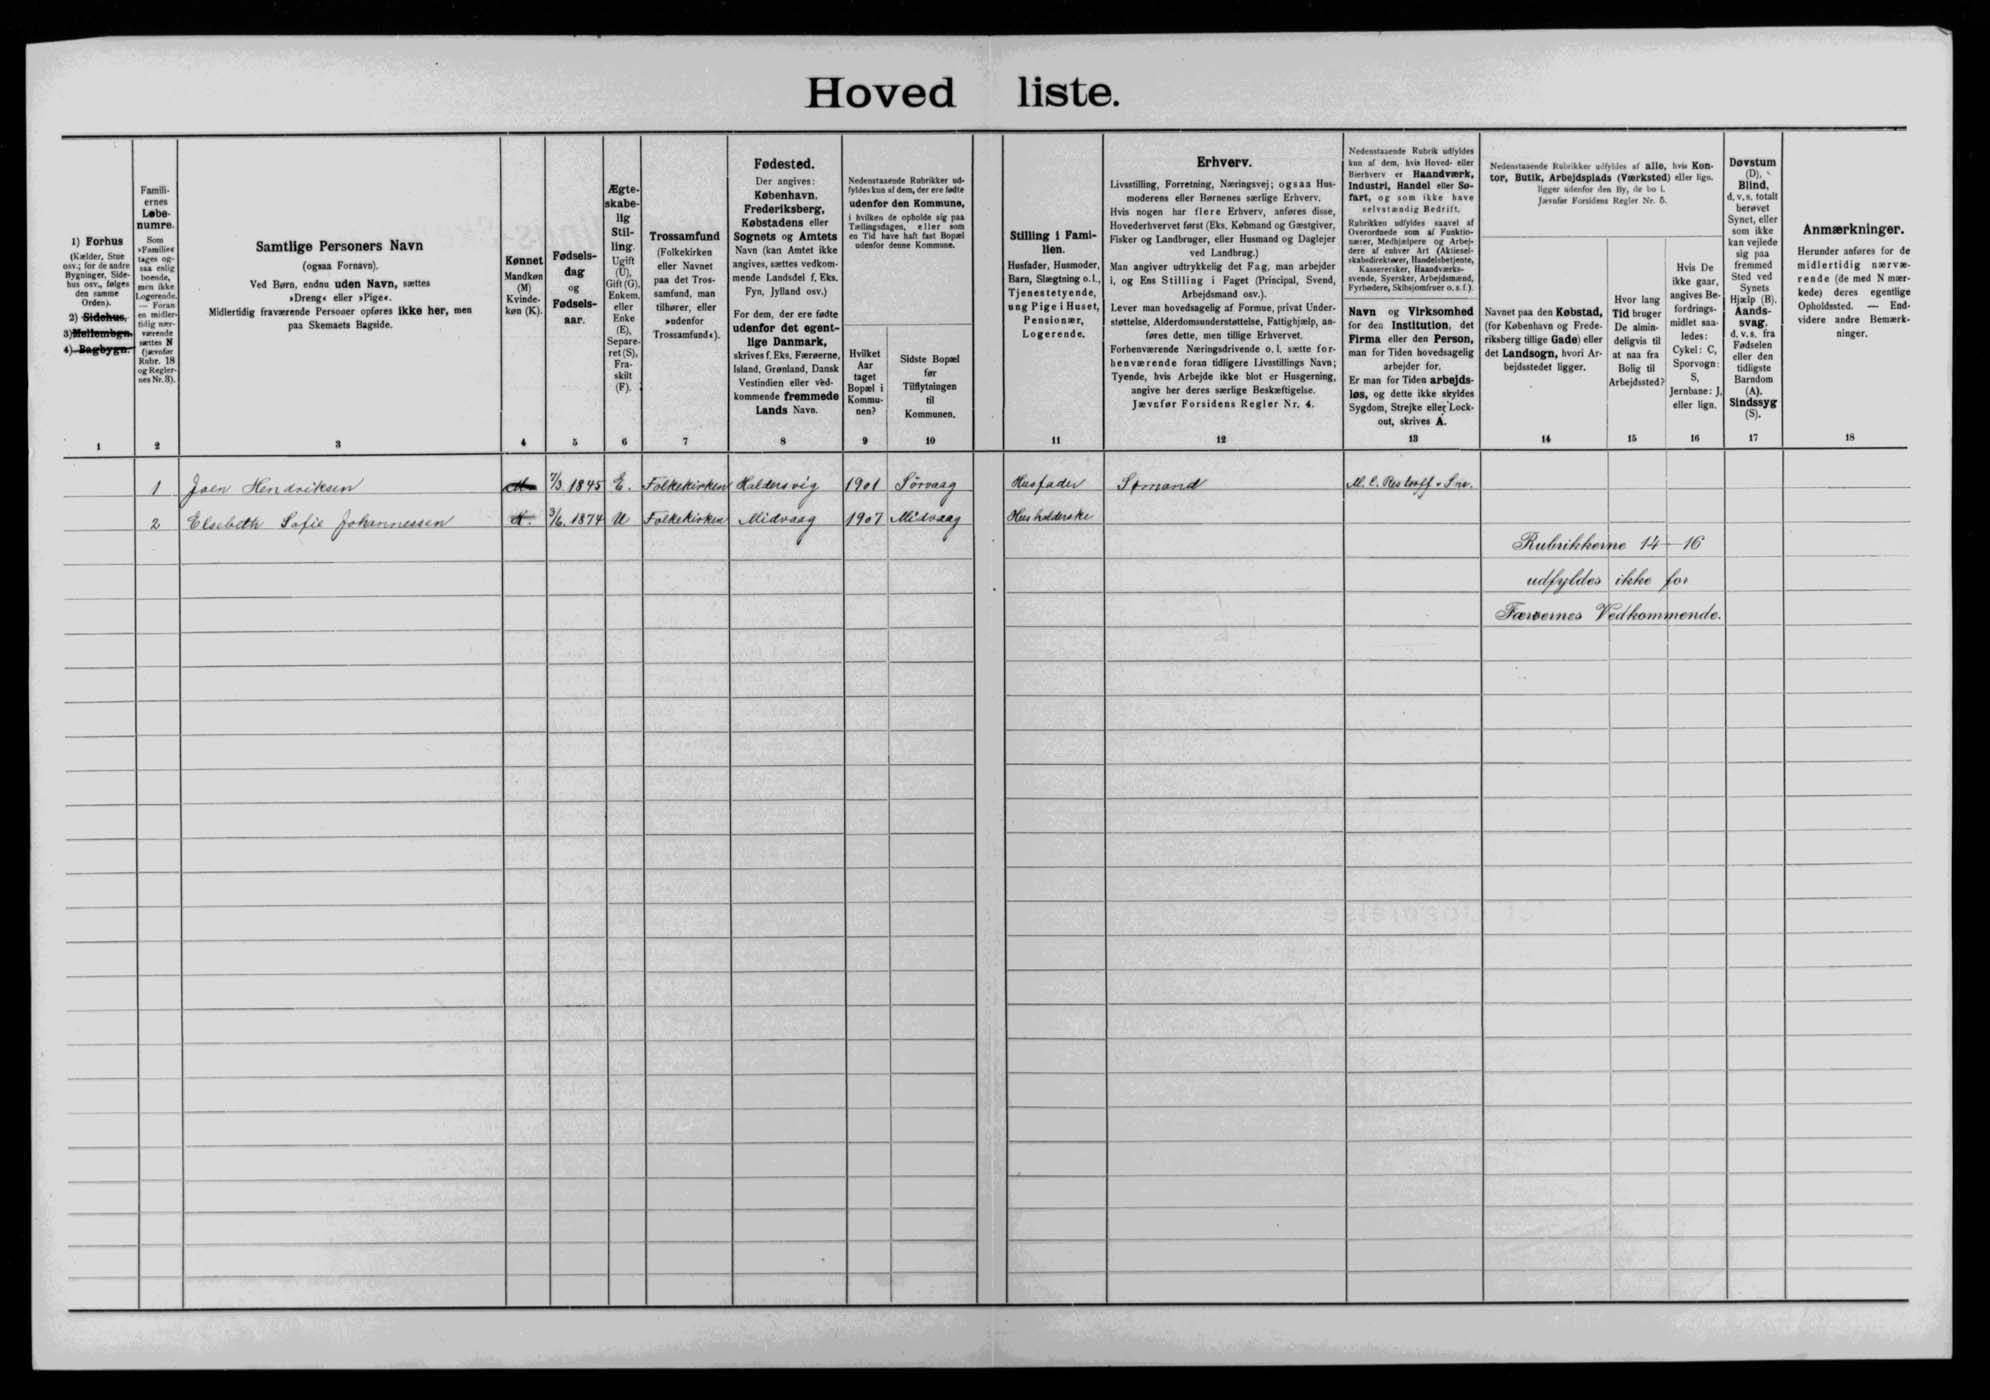 Hovedliste.
1) Forhus
(Kælder, Stue
osv.; for de andre
Bygninger, Side-
hus osv., følges
den samme
Orden).
2) Sidehus,
3) Mellembgn.
4) Bagbygn.
1
Famili-
ernes
Løbe-
numre.
Som
»Familie«
tages og-
saa enlig
boende,
men ikke
Logerende.
— Foran
en midler-
tidig nær-
værende
sættes N
(jævnfør
Rubr. 18
og Regler-
nes Nr. 8).
2
Samtlige Personers Navn
(ogsaa Fornavn).
Ved Børn, endnu uden Navn, sættes
»Dreng« eller »Pige«.
Midlertidig fraværende Personer opføres ikke her, men
paa Skemaets Bagside.
3
Kønnet
Mandkøn
(M)
Kvinde-
køn (K).
4
Fødsels-
dag
og
Fødsels-
aar.
5
Ægte-
skabe-
lig
Stil-
ling.
Ugift
(U),
Gift (G),
Enkem.
eller
Enke
(E),
Separe-
ret (S),
Fra-
skilt
(F).
6
Trossamfund
(Folkekirken
eller Navnet
paa det Tros-
samfund, man
tilhører, eller
»udenfor
Trossamfund«).
7
Fødested.
Der angives:
København,
Frederiksberg,
Købstadens eller
Sognets og Amtets
Navn (kan Amtet ikke
angives, sættes vedkom-
mende Landsdel f. Eks.
Fyn, Jylland osv.)
For dem, der ere fødte
udenfor det egent-
lige Danmark,
skrives f. Eks. Færøerne,
Island, Grønland, Dansk
Vestindien eller ved-
kommende fremmede
Lands Navn.
8
Nedenstaaende Rubrikker ud-
fyldes kun af dem, der ere fødte
udenfor den Kommune,
i hvilken de opholde sig paa
Tællingsdagen, eller som
en Tid have haft fast Bopæl
udenfor denne Kommune.
Hvilket
Aar
taget
Bopæl i
Kommu-
nen?
9
Sidste Bopæl
før
Tilflytningen
til
Kommunen.
10
Stilling i Fami-
lien.
Husfader, Husmoder,
Barn, Slægtning o. l.,
Tjenestetyende,
ung Pige i Huset,
Pensionær,
Logerende.
11
Erhverv.
Livsstilling, Forretning, Næringsvej; ogsaa Hus-
moderens eller Børnenes særlige Erhverv.
Hvis nogen har flere Erhverv, anføres disse,
Hovederhvervet først (Eks. Købmand og Gæstgiver,
Fisker og Landbruger, eller Husmand og Daglejer
ved Landbrug.)
Man angiver udtrykkelig det Fag, man arbejder
i, og Ens Stilling i Faget (Principal, Svend,
Arbejdsmand osv.).
Lever man hovedsagelig af Formue, privat Under-
støttelse, Alderdomsunderstøttelse, Fattighjælp, an-
føres dette, men tillige Erhvervet.
Forhenværende Næringsdrivende o. l. sætte for-
henværende foran tidligere Livsstillings Navn;
Tyende, hvis Arbejde ikke blot er Husgerning,
angive her deres særlige Beskæftigelse.
Jævnfør Forsidens Regler Nr. 4.
12
Nedenstaaende Rubrik udfyldes
kun af dem, hvis Hoved- eller
Bierhverv er Haandværk,
Industri, Handel eller Sø-
fart, og som ikke have
selvstændig Bedrift.
Rubrikken udfyldes saavel af
Overordnede som af Funktio-
nærer, Medhjælpere og Arbej-
dere af enhver Art (Aktiesel-
skabsdirektører, Handelsbetjente,
Kassererske, Haandværks-
svende, Syersker, Arbejdsmænd,
Fyrbødere, Skibsjomfruer o. s. f.).
Navn og Virksomhed
for den Institution, det
Firma eller den Person,
man for Tiden hovedsagelig
arbejder for.
Er man for Tiden arbejds-
løs, og dette ikke skyldes
Sygdom, Strejke eller Lock-
out, skrives A.
13
Nedenstaaende Rubrikker udfyldes af alle, hvis Kon-
tor, Butik, Arbejdsplads (Værksted) eller lign.
ligger udenfor den By, de bo i.
Jævnfør Forsidens Regler Nr. 5.
Navnet paa den Købstad,
(for København og Frede-
riksberg tillige Gade) eller
det Landsogn, hvori Ar-
bejdsstedet ligger.
14
Hvor lang
Tid bruger
De almin-
deligvis til
at naa fra
Bolig til
Arbejdssted?
15
Hvis De
ikke gaar,
angives Be-
fordrings-
midlet saa-
ledes:
Cykel: C,
Sporvogn:
S,
Jernbane: J.
eller lign.
16
Døvstum
(D),
Blind,
d. v. s. totalt
berøvet
Synet, eller
som ikke
kan vejlede
sig paa
fremmed
Sted ved
Synets
Hjælp (B).
Aands-
svag,
d. v. s. fra
Fødselen
eller den
tidligste
Barndom
(A).
Sindssyg
(S).
17
Anmærkninger.
Herunder anføres for de
midlertidig nærvæ-
rende (de med N mær-
kede) deres egentlige
Opholdssted. — End-
videre andre Bemærk-
ninger.
18
1 Joen Hendriksen M 7/3 1845 E. Folkekirken Haldersvig 1901 Sörvaag Husfader Sømand M. C. Restorff & Snr.
2 Elsebeth Sofie Johannessen K. 3/6. 1874 U Folkekirken Midvaag 1907 Midvaag Husholderske
Rubrikkerne 14-16
udfyldes ikke for
Færøernes Vedkommende.